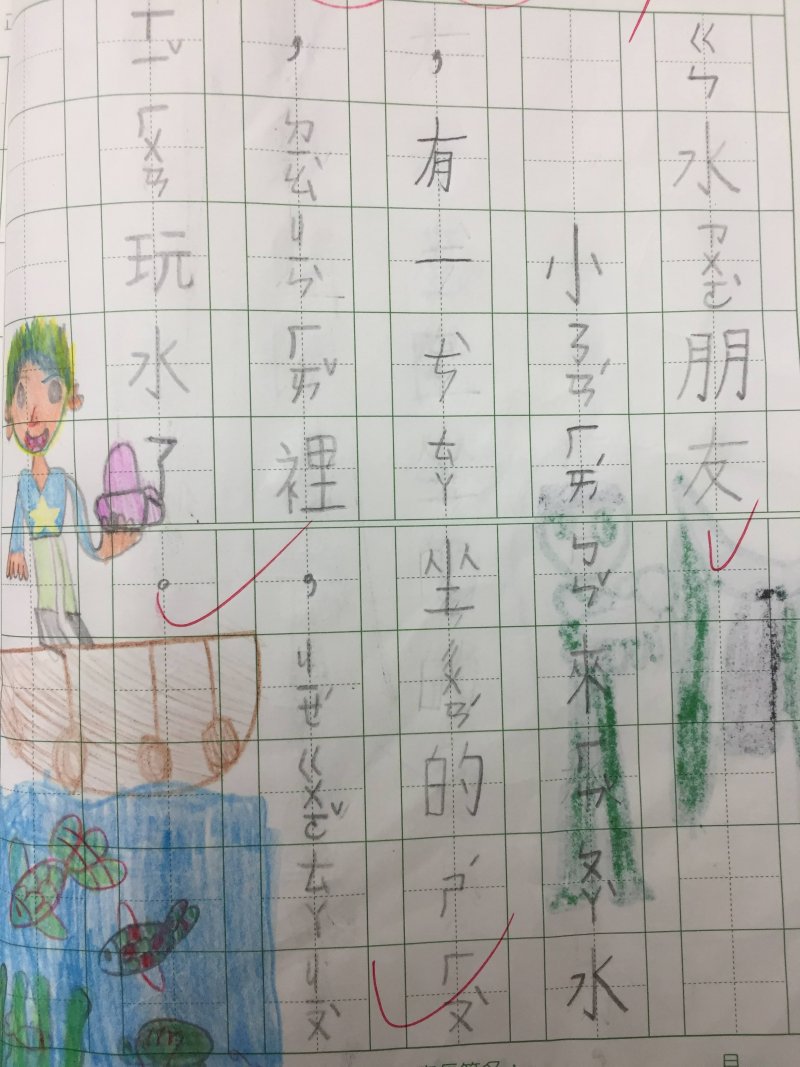 ㄍㄣ水ㄗㄨㄛˋ朋友
小ㄋㄢˊㄏㄞˊㄅㄣˇ來ㄏㄣˇㄆㄚˋ水
，有一ㄘˋㄊㄚ坐ㄔㄨㄢˊ的ㄕˊㄏㄡˋ
，ㄉㄧㄠˋㄐㄧㄣˋㄏㄞˇ裡，ㄐㄧㄝˊㄍㄨㄛˇㄊㄚㄐㄧㄡˋ
ㄒㄧˇㄏㄨㄢ玩水了。